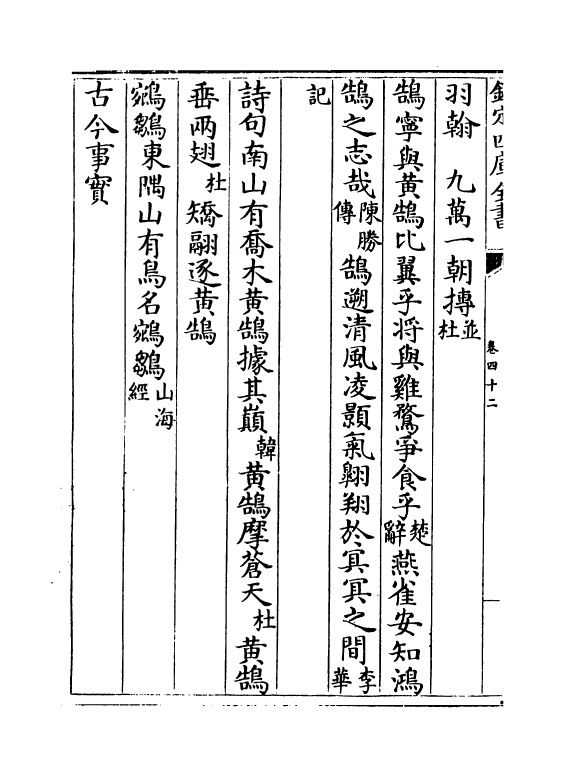 欽定四庫全書
卷四十二
羽翰　九萬一朝摶並杜
鵠寧與黃鵠比翼乎将與雞鶩爭食乎楚辭燕雀安知鴻
鵠之志哉陳勝傳鵠遡清風凌顥氣翺翔於冥冥之間李華
記
詩句南山有喬木黃鵠據其巔韓黃鵠摩蒼天杜黃鵠
垂兩翅杜矯翮逐黃鵠
鵷鶵東隅山有鳥名鵷鶵山海經
古今事實